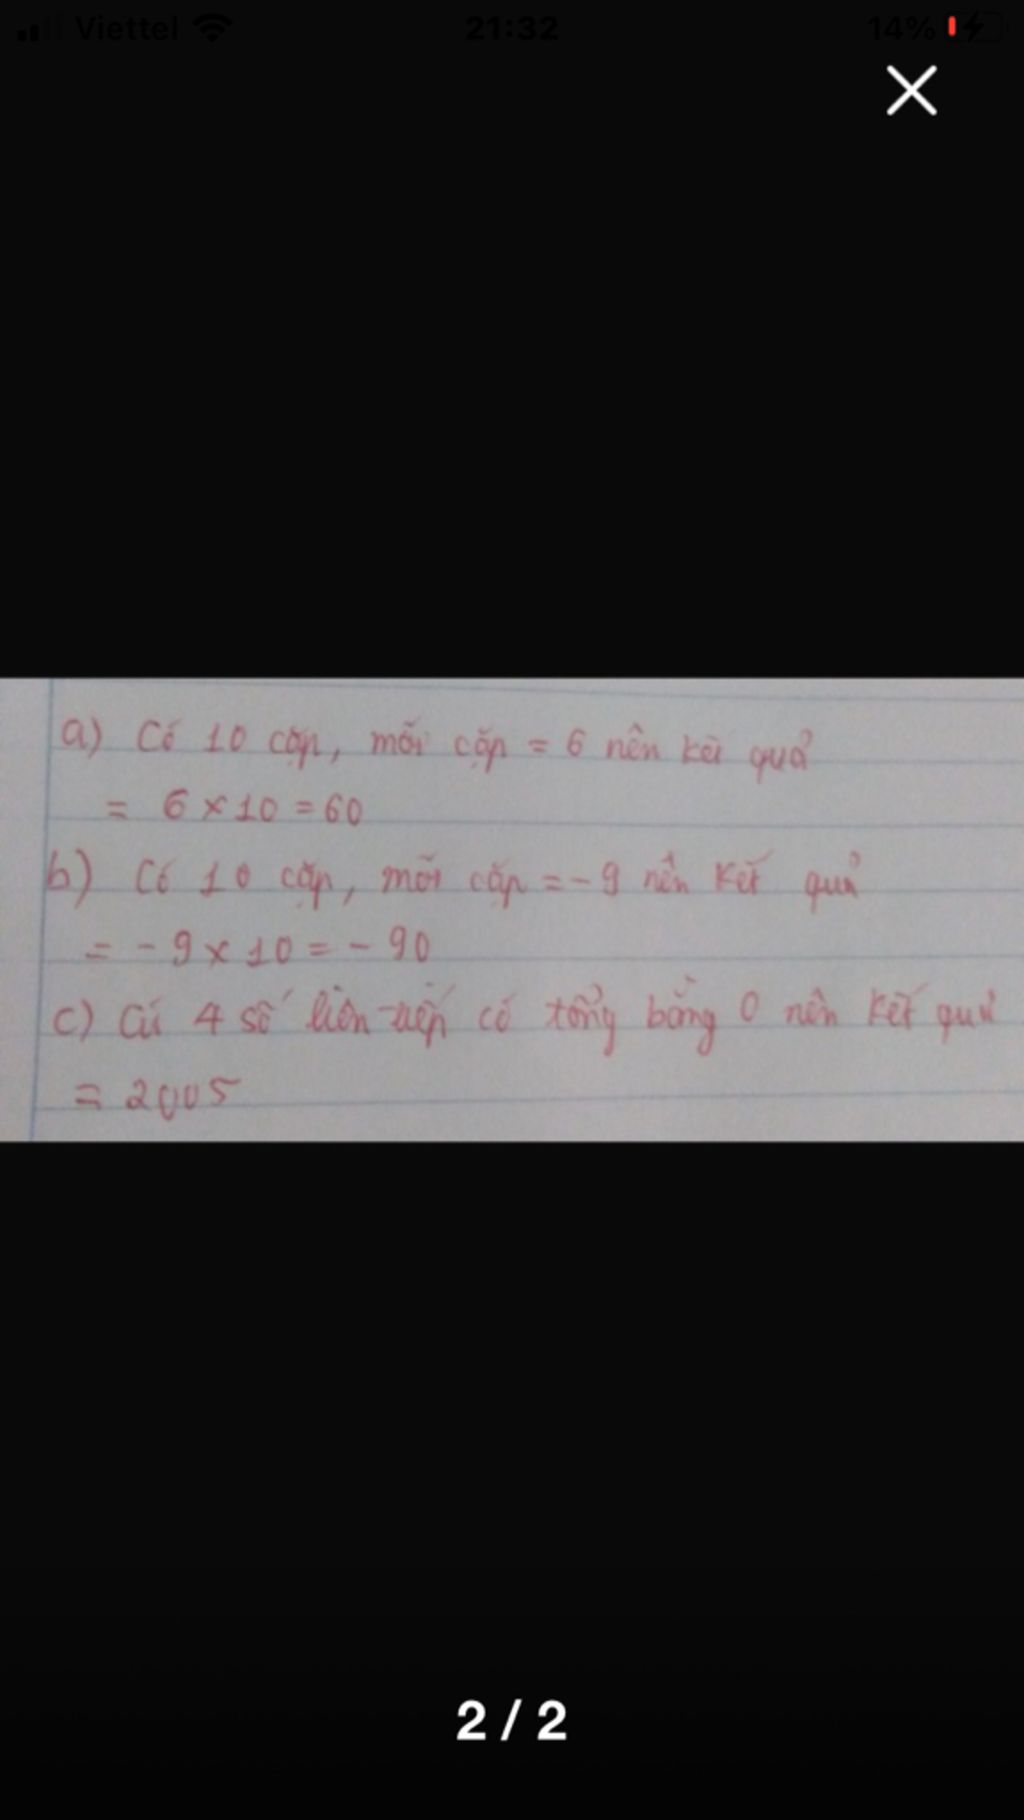 Viettel 21:32 14%
a) Có 10 cặp, mỗi cặp = 6 nên kết quả
= 6 x 10 = 60
b) Có 10 cặp, mỗi cặp = - 9 nên kết quả
= - 9 x 10 = - 90
c) Cứ 4 số liên tiếp có tổng bằng 0 nên kết quả
= 2005
2 / 2